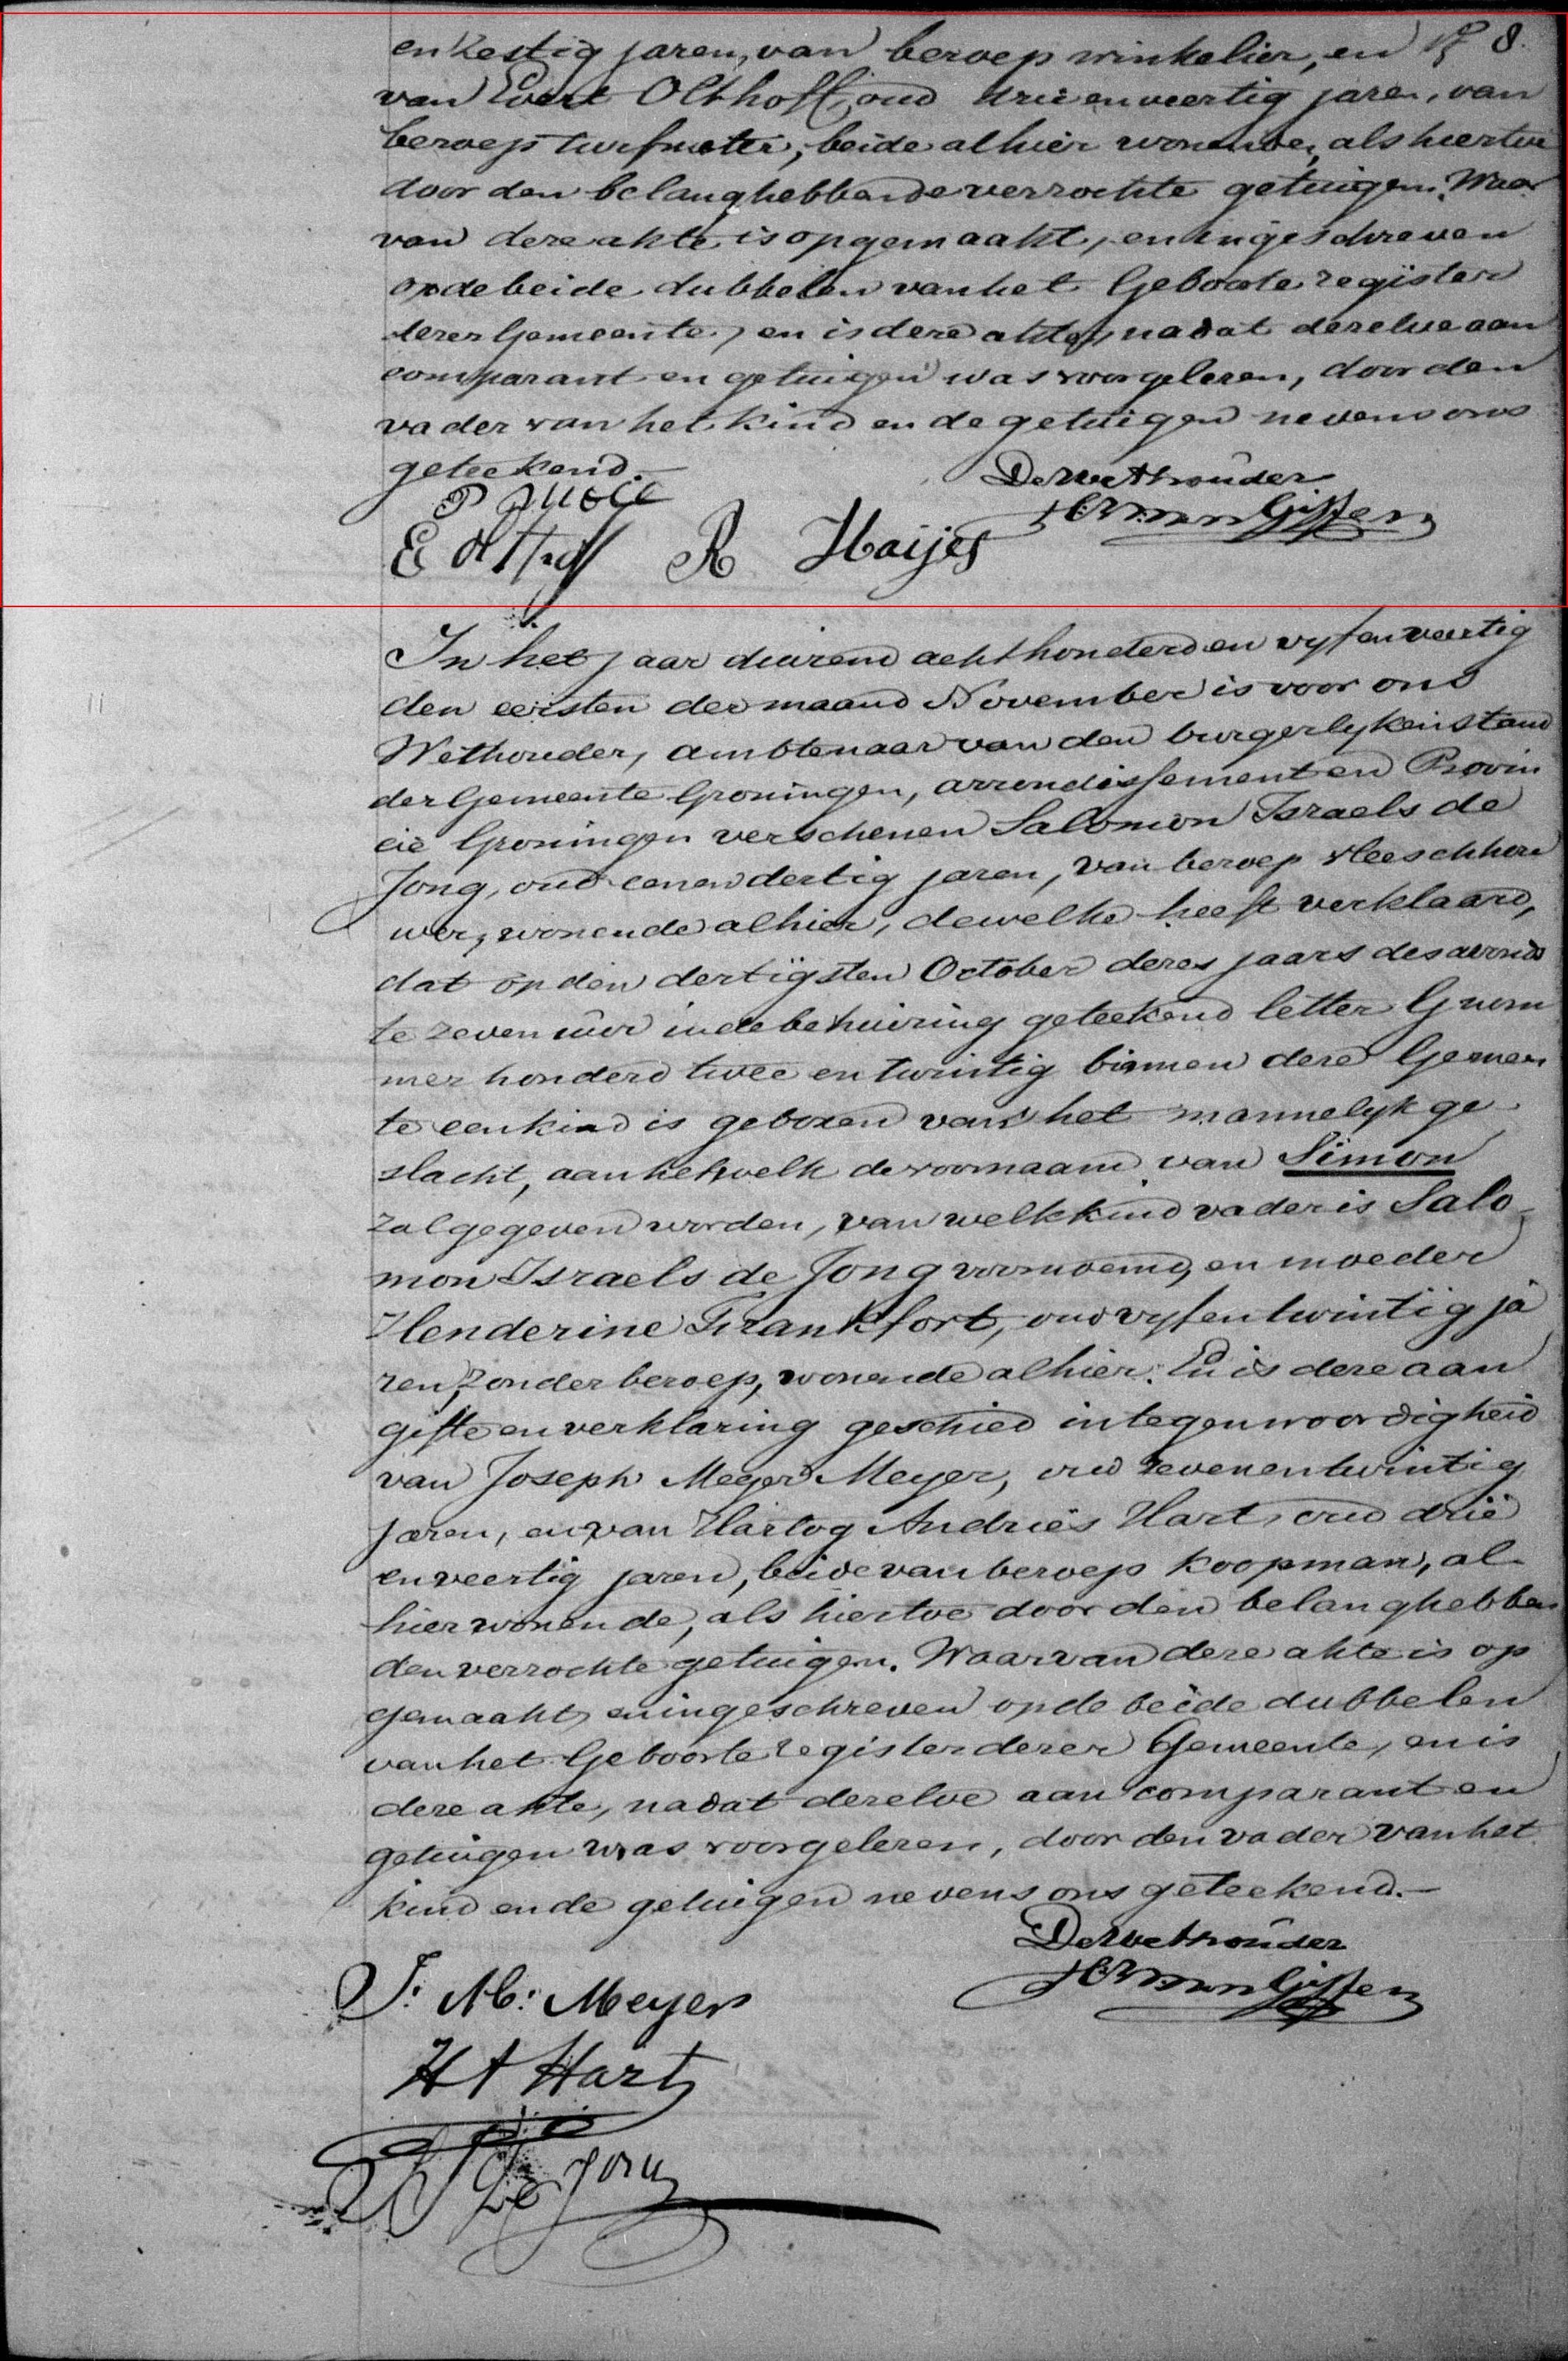 en zestig jaren, van beroep winkelier, en 8.
van Evert Olthoff, oud drie en veertig jaren, van
beroep turfmeter, beide alhier wonende, als hiertoe
door den belanghebbende verzochte getuigen. Waar
van deze akte is opgemaakt, en ingeschreven
op de beide dubbelen van het Geboorte register
dezer Gemeente, en is deze akte, nadat dezelve aan
comparant en getuigen was voorgelezen, door den
vader van het kind en de getuigen nevens ons
geteekend.
De Wethouder
E Olthoff R Haijes
In het jaar duizend achthonderd en vyf en veertig
den eersten der maand November is voor ons
Wethouder, ambtenaar van den burgerlyken stand
der Gemeente Groningen, arrondissement en Provin
cie Groningen verschenen Salomon Israels de
Jong, oud een en dertig jaren, van beroep vleeschhou
wer, wonende alhier, dewelke heeft verklaard,
dat op den dertigsten October dezes jaars des avonds
te zeven uur in de behuizing geteekend letter G nom
mer honderd twee en twintig binnen deze Gemeen
te een kind is geboren van het mannelyk ge-
slacht, aan hetwelk de voornaam van Simon
zal gegeven worden, van welk kind vader is Salo-
mon Israels de Jong voornoemd, en moeder
Henderine Frankfort, oud vyf en twintig ja
ren, zonder beroep, wonende alhier. En is deze aan
gifte en verklaring geschied in tegenwoordigheid
van Joseph Meyer Meyer, oud zeven en twintig
jaren, en van Hartog Andries Hart, oud drie
en veertig jaren, beide van beroep koopman, al-
hier wonende, als hiertoe door den belanghebben
den verzochte getuigen. Waarvan deze akte is op
gemaakt, en ingeschreven op de beide dubbelen
van het Geboorte register dezer Gemeente, en is
deze akte, nadat dezelve aan comparant en
getuigen was voorgelezen, door den vader van het
kind en de getuigen nevens ons geteekend.-
De Wethouder
J: M: Meyer
H A Hart
de Jong